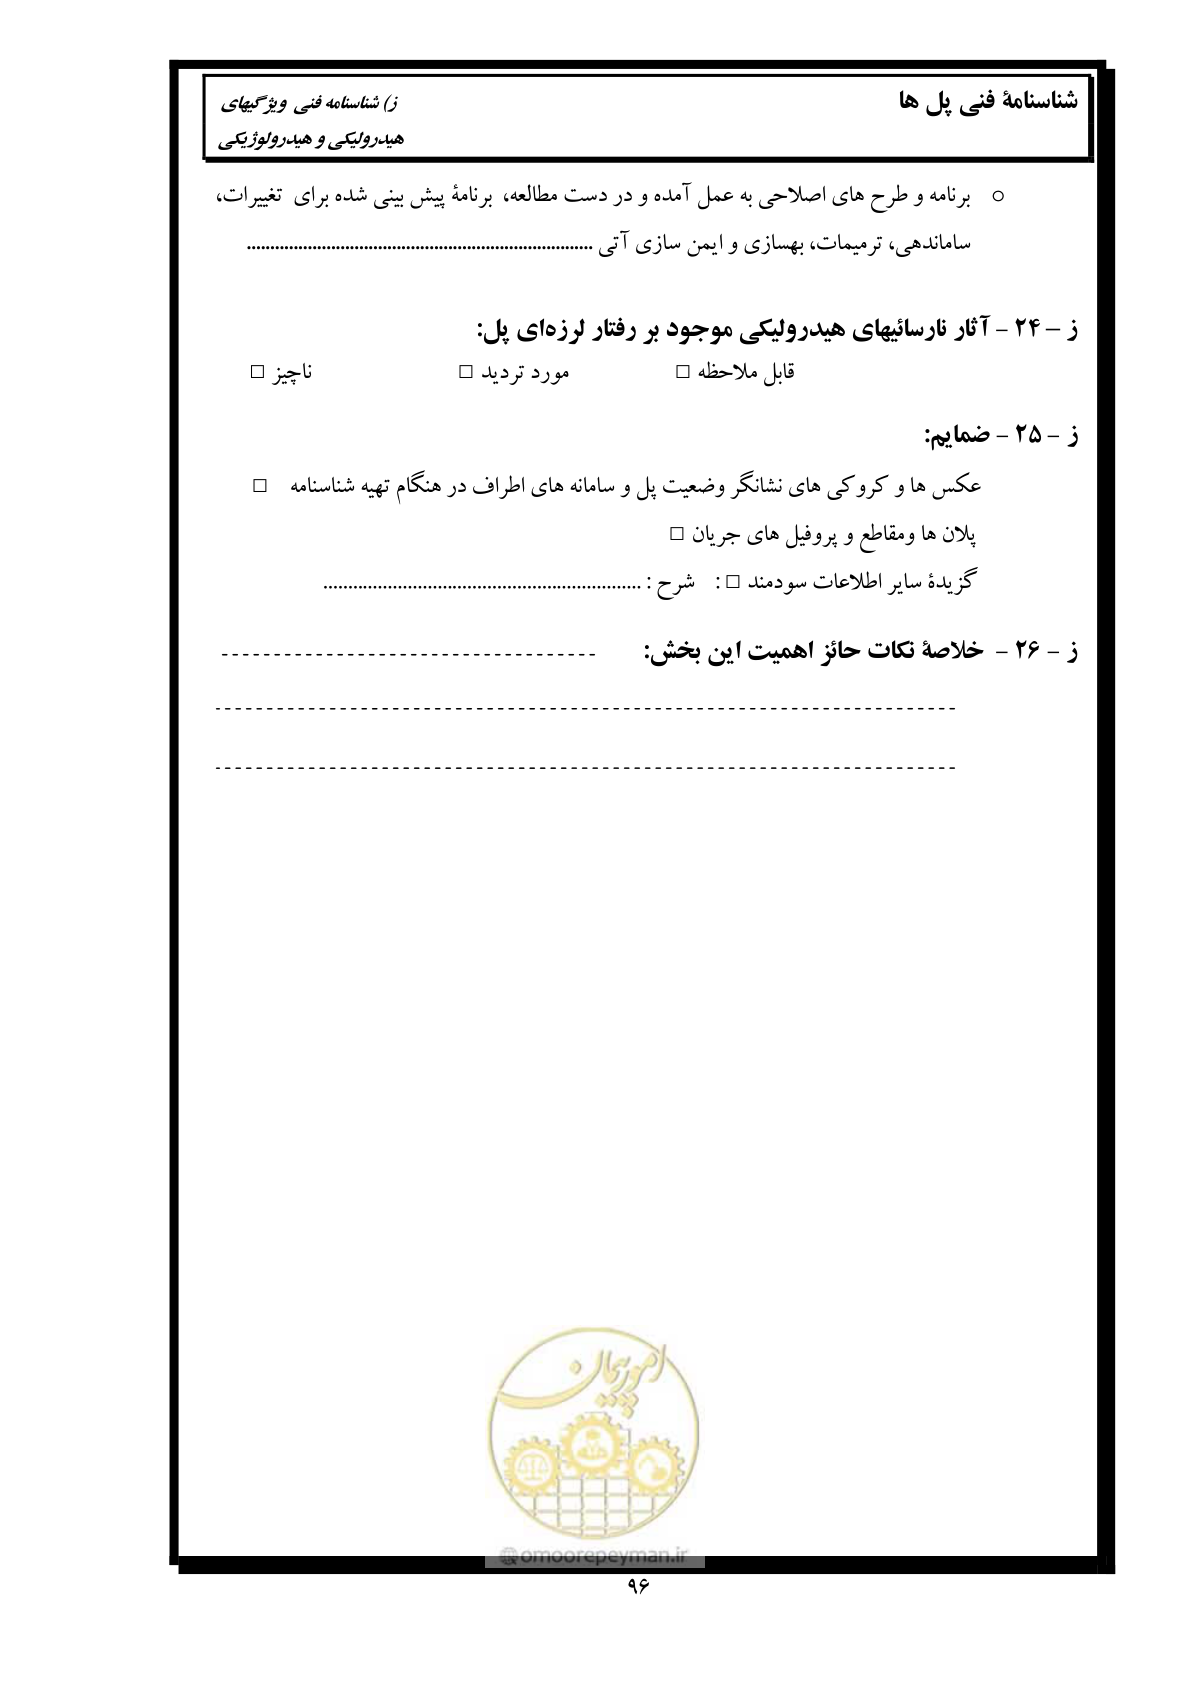 شناسنامهٔ فنی پل ها
ز) شناسنامه فنی ویژگیهای
هیدرولیکی و هیدرولوژیکی
○ برنامه و طرح های اصلاحی به عمل آمده و در دست مطالعه، برنامهٔ پیش بینی شده برای تغییرات،
ساماندهی، ترمیمات، بهسازی و ایمن سازی آتی ..........................................................................
ز – ۲۴ – آثار نارسائیهای هیدرولیکی موجود بر رفتار لرزه‌ای پل:
قابل ملاحظه □ مورد تردید □ ناچیز □
ز – ۲۵ – ضمایم:
عکس ها و کروکی های نشانگر وضعیت پل و سامانه های اطراف در هنگام تهیه شناسنامه □
پلان ها ومقاطع و پروفیل های جریان □
گزیدهٔ سایر اطلاعات سودمند □ : شرح : ................................................................
ز – ۲۶ – خلاصهٔ نکات حائز اهمیت این بخش: ------------------------------------
-----------------------------------------------------------------------
-----------------------------------------------------------------------
امور پیمان
@omoorepeyman.ir
۹۶